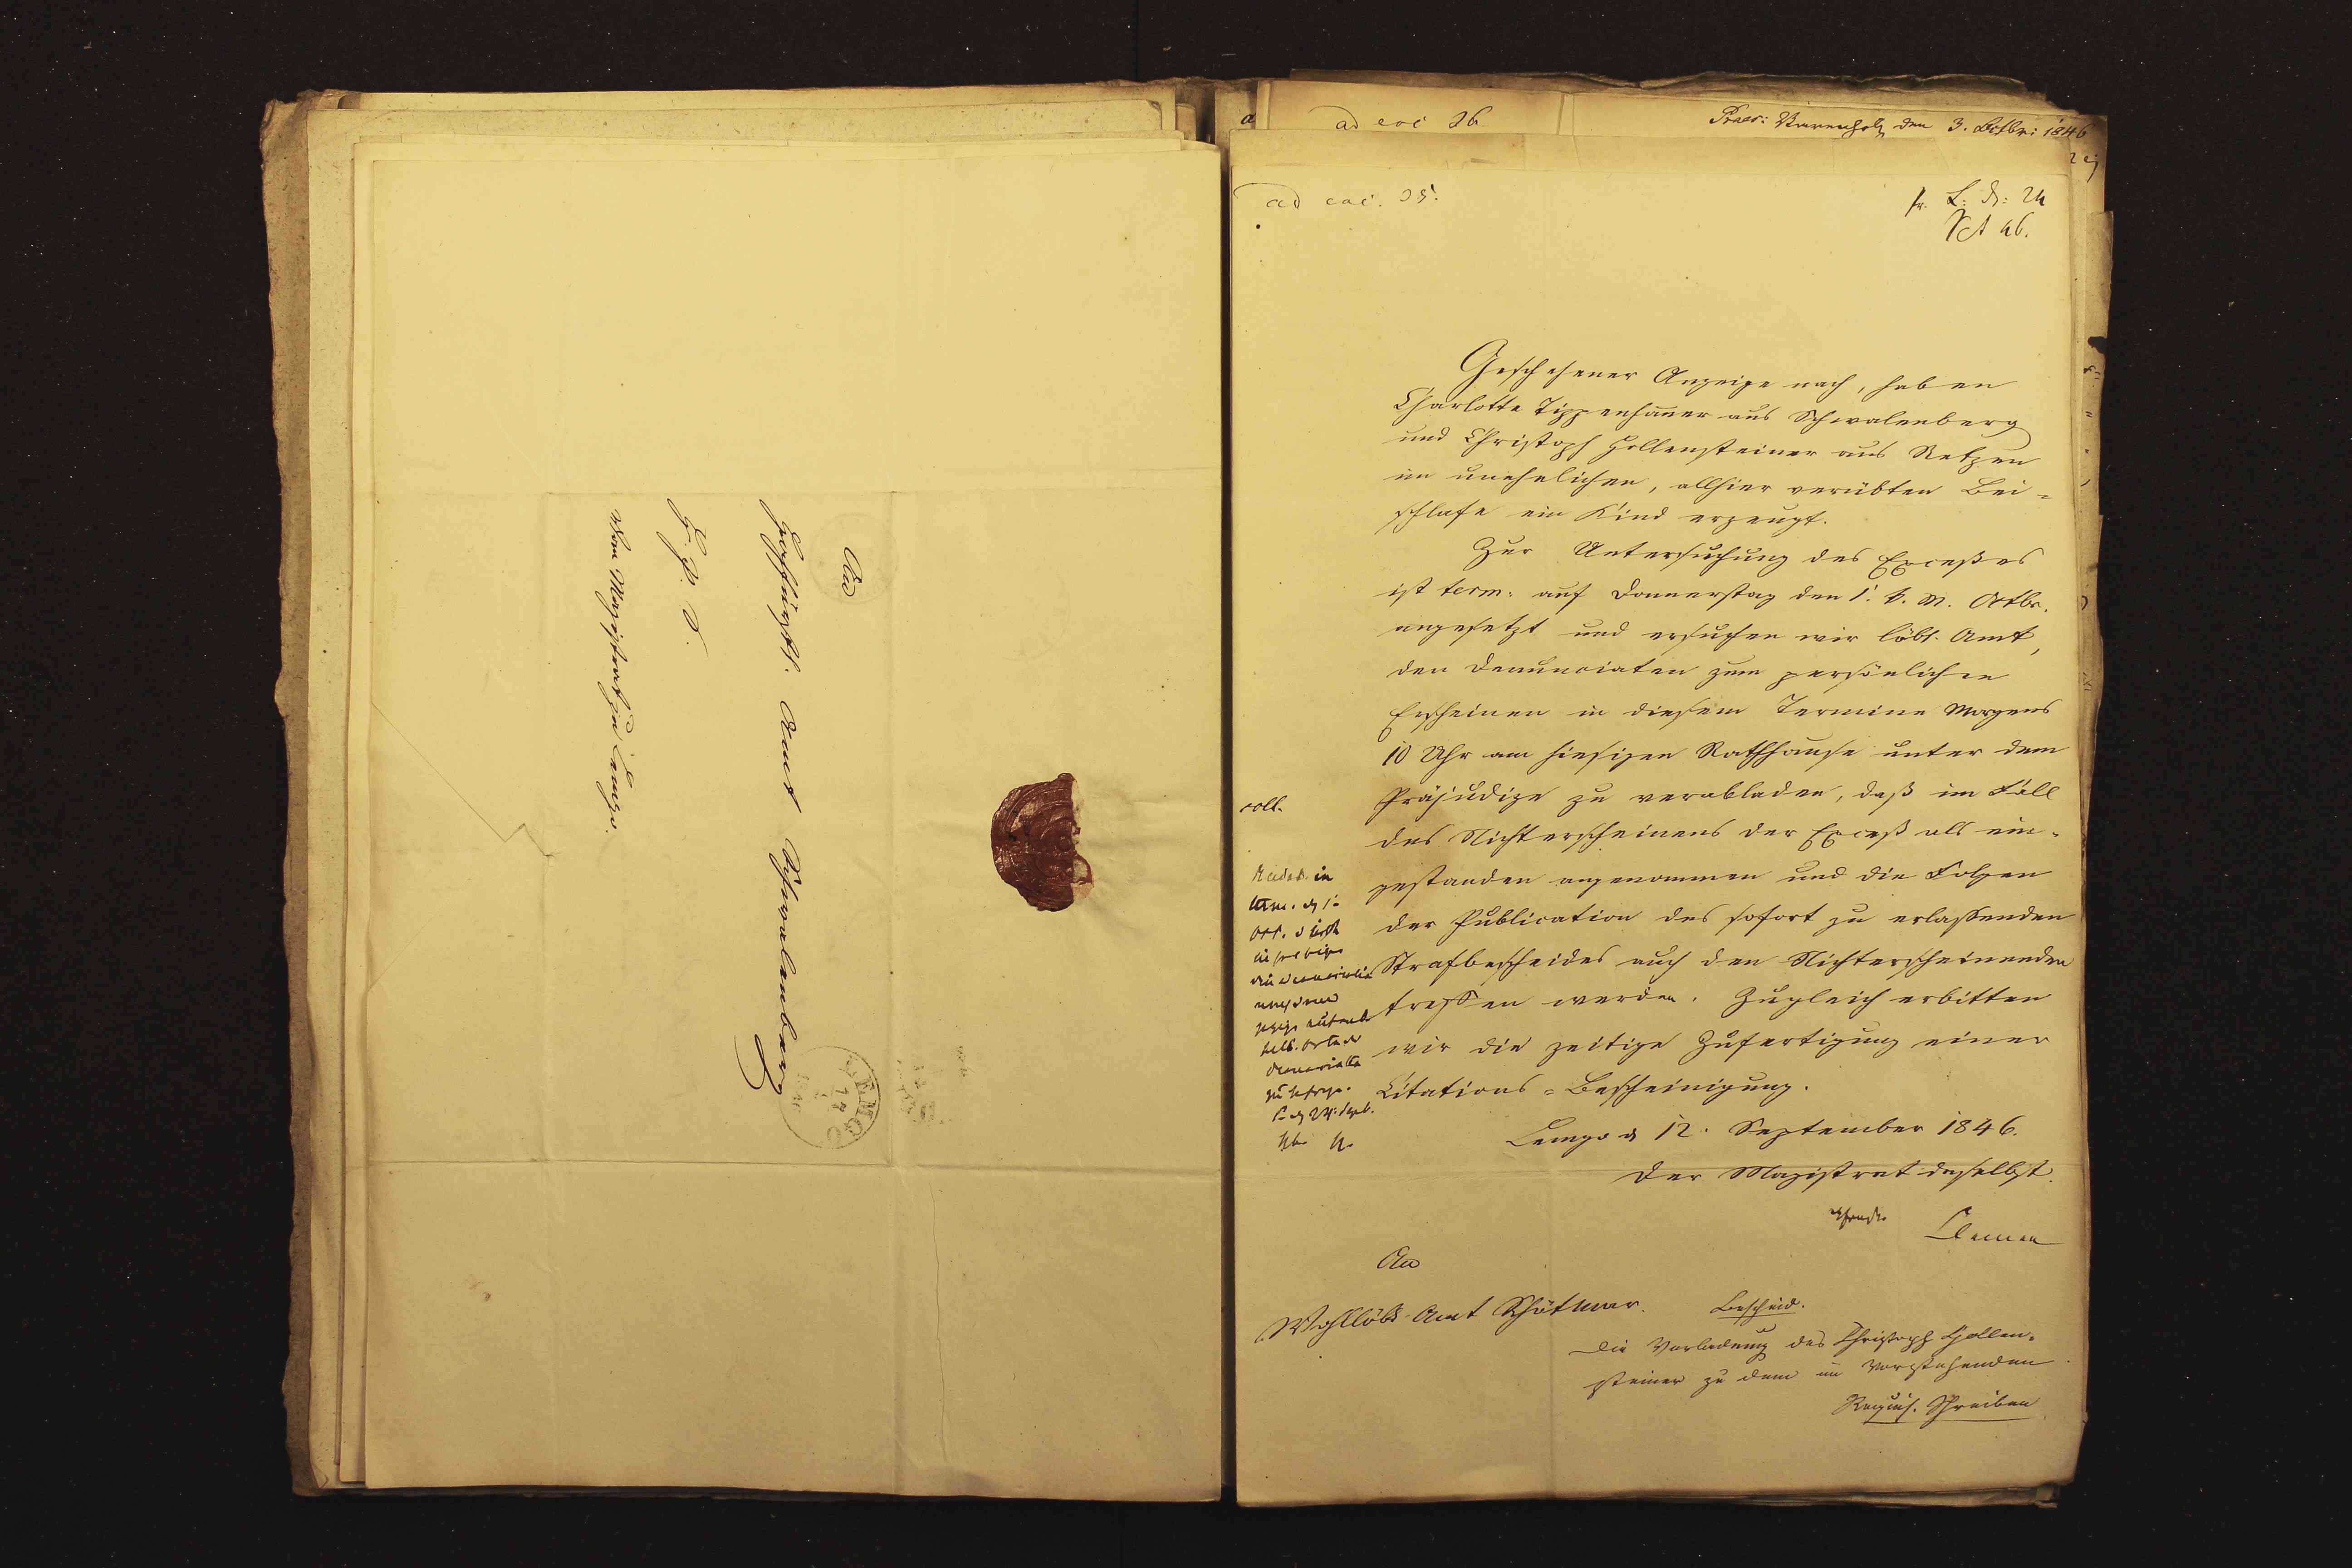 An
Hochfürstl. Amt Schwalenberg
H. J. S.
vom Magistrat zu Lemgo.
LEMGO
17
ad cos 26
Praes: Varenholz den 3. Octbr: 1846
ad cos. 25.
pr. 24
46.
Geschehener Anzeige nach, haben
Charlotte Tippenhauer aus Schwalenberg
und Christoph Hollensteiner aus Retzen
im unehelichen, allhier verübten Bei-
schlafe ein Kind erzeugt.
Zur Untersuchung des Exceßes
ist term: auf Donnerstag den 1. k. M. Octbr.
angesetzt und ersuchen wir löbl. Amt,
den Denunciaten zum persönlichen
Erscheinen in diesem Termine Morgens
10 Uhr am hiesigen Rathhause unter dem
Präjudize zu verabladen, daß im Fall
des Nichterscheinens der Exceß als ein-
gestanden angenommen und die Folgen
der Publication des sofort zu erlassenden
Strafbescheides auch den Nichterscheinenden
treffen werden. Zugleich erbitten
wir die zeitige Zufertigung einer
Citations-Bescheinigung.
Lemgo d 12. September 1846.
Der Magistrat daselbst.
An
Wohllöbl. Amt Schötmar.
Bescheid.
Die Vorladung des Christoph Hollen-
steiner zu dem im vorstehenden
Requis. Schreiben